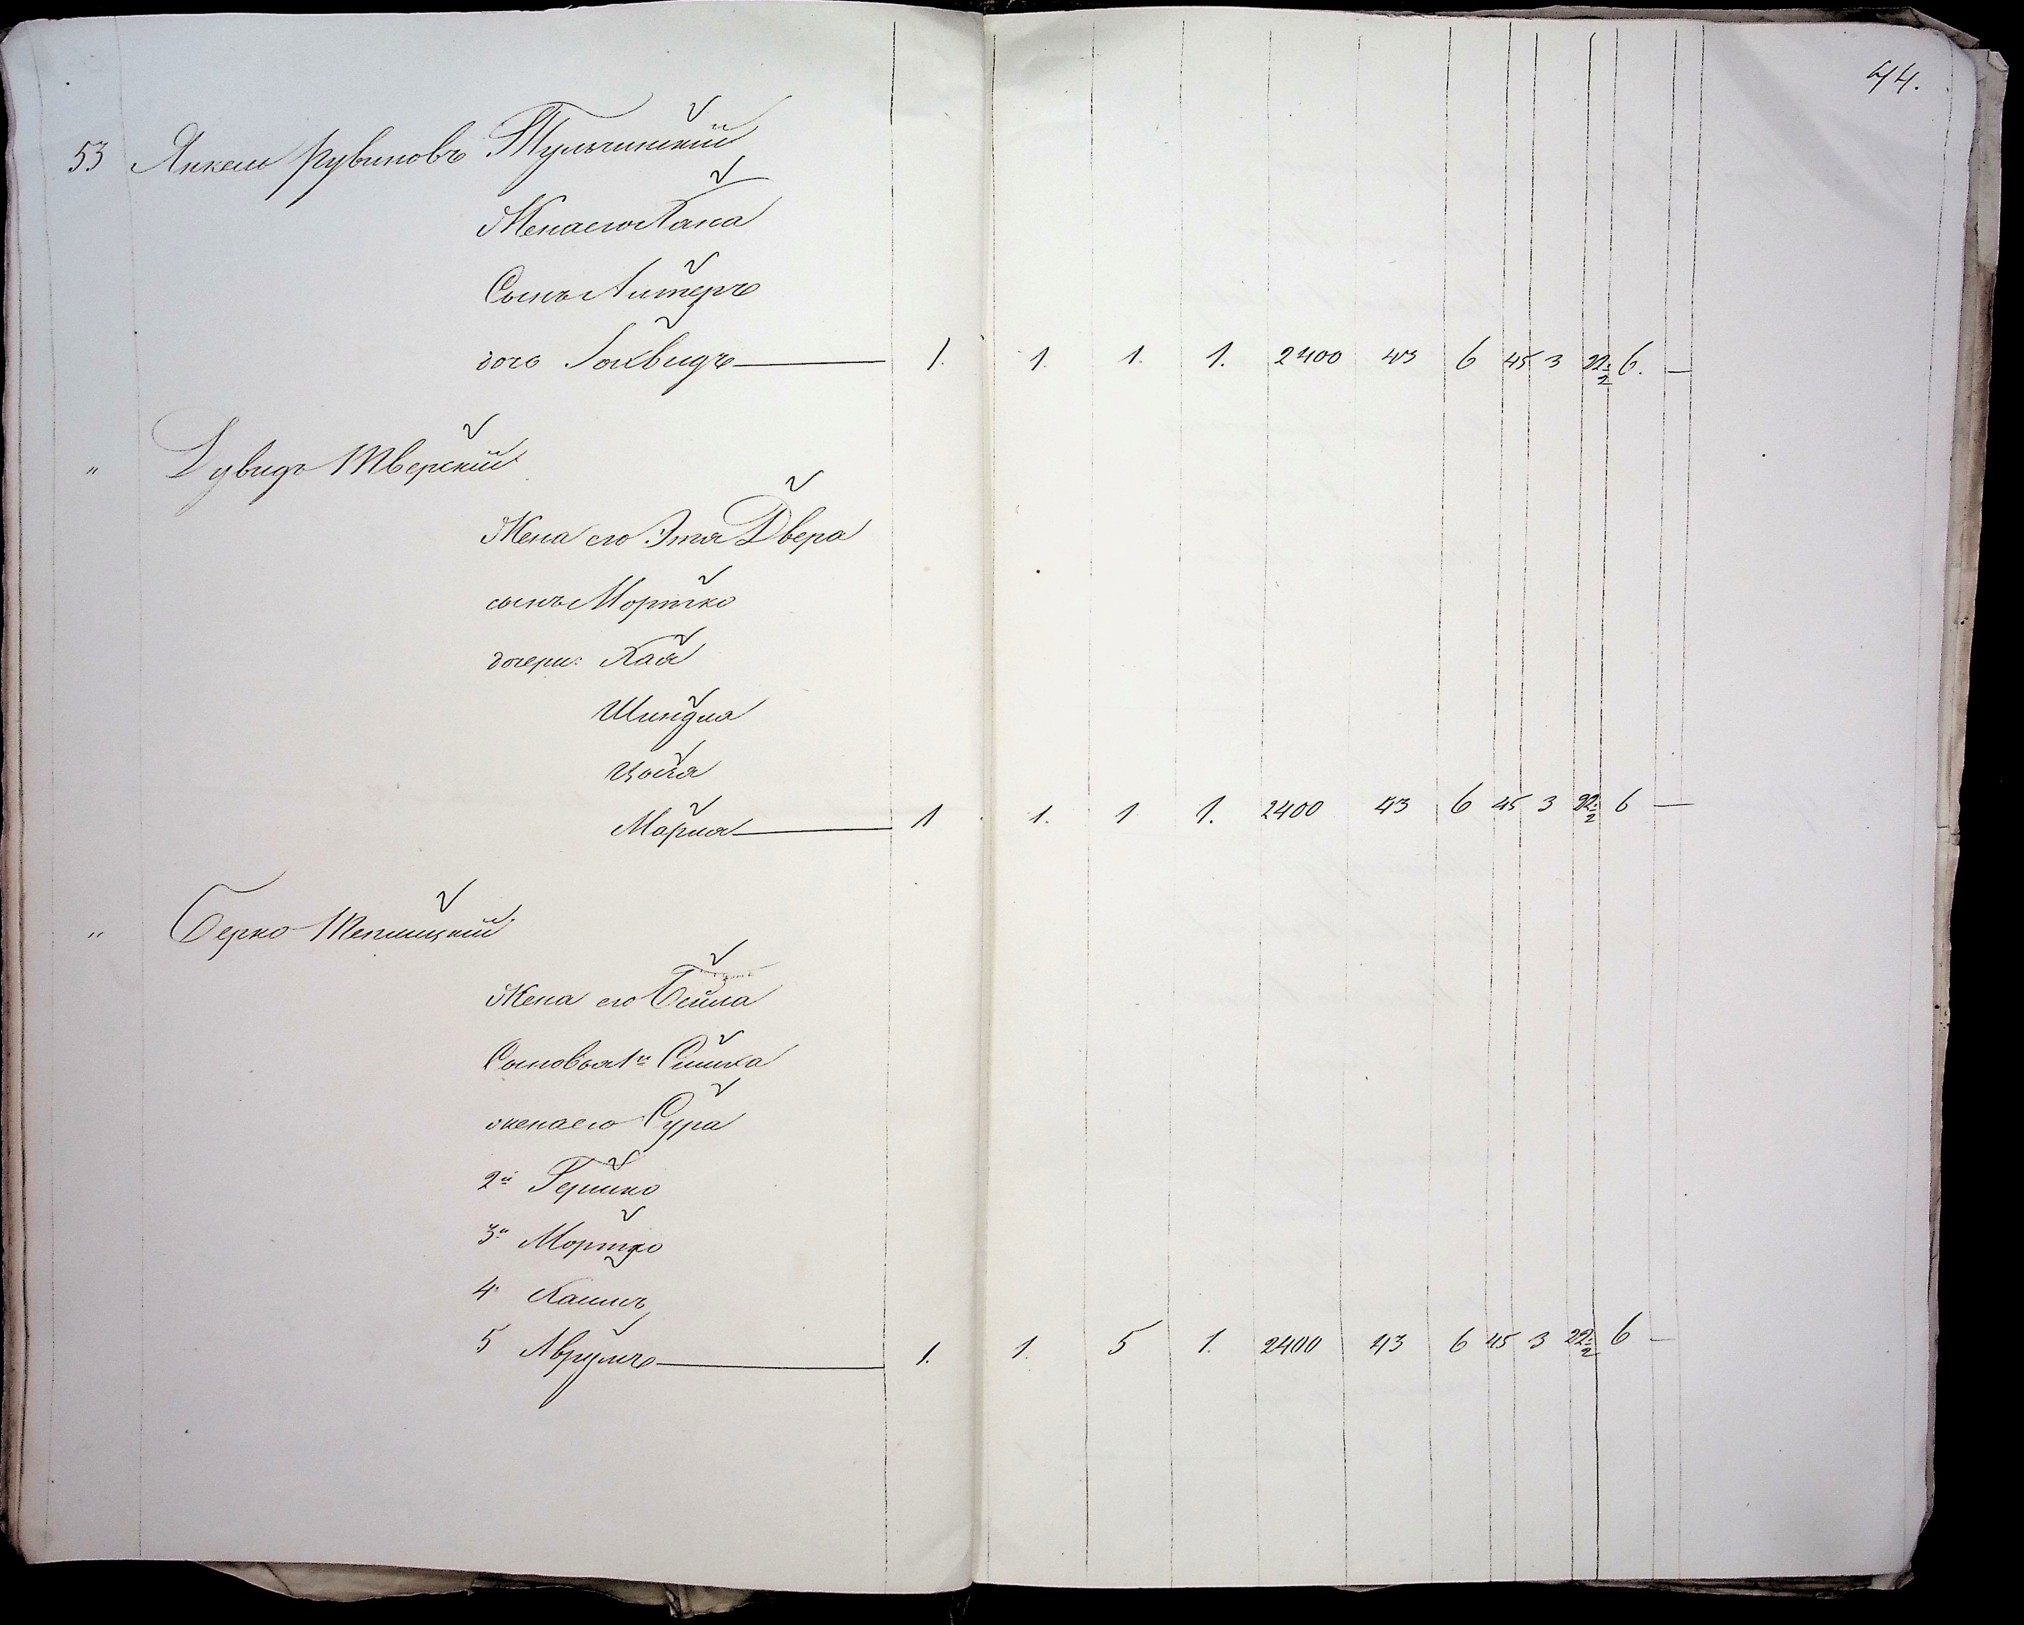 44.
53 Янкель Рувиновъ Тульчинскій
Жена его Хана
Сынъ Литеръ
дочь Гохвидъ 1. 1. 1. 1. 2400 43 6 45 3 22 1/2 6. —
" Дувидъ Тверскій
Жена его Этя Двера
сынъ Мортко
дочери: Хая
Шиндля
Цося
Марія 1 1. 1 1. 2400 43 6 45 3 22 1/2 6 —
" Берко Теплицкій
Жена его Бейла
Сыновья 1й Симха
жена его Сура
2й Гершко
3й Мортко
4 Хаимъ
5 Аврумъ 1. 1. 5 1. 2400 43 6 45 3 22 1/2 6 —